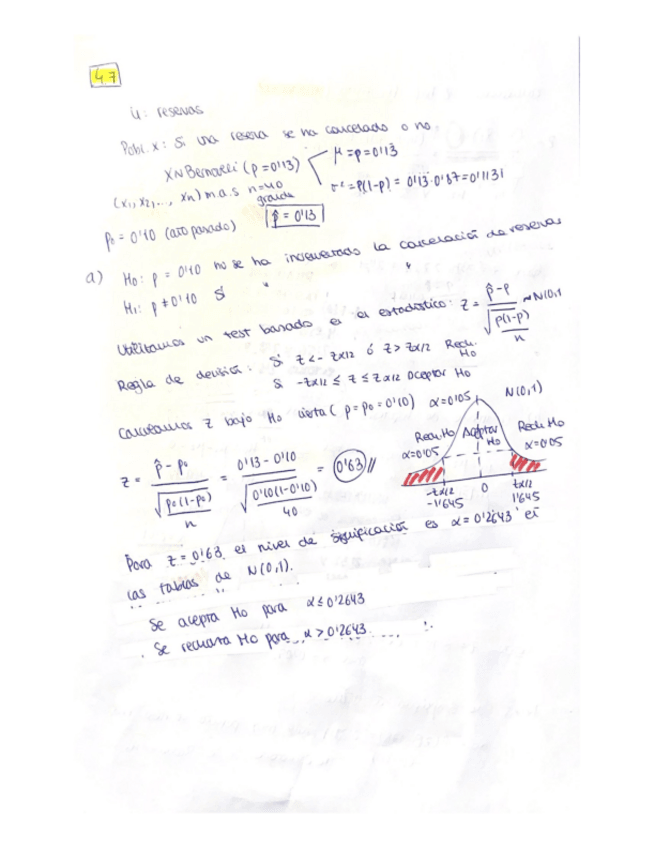 47
U: reservas
Pobl. X: Si una reserva se ha cancelado o no.
X ~ Bernoulli (p = 0'13)
μ = p = 0'13
σ² = p(1-p) = 0'13·0'87 = 0'1131
(x1, x2, ..., xn) m.a.s n=40 grande
p̂ = 0'13
p0 = 0'10 (año pasado)
a) H0: p = 0'10 no se ha incrementado la cancelación de reservas
H1: p ≠ 0'10 Sí " "
Utilizamos un test basado en el estadístico: Z = (p̂ - p) / √(p(1-p)/n) ~ N(0,1)
Regla de decisión: Si Z < -Zα/2 ó Z > Zα/2 Rech. H0
Si -Zα/2 ≤ Z ≤ Zα/2 Aceptar H0
Calculamos Z bajo H0 cierta (p = p0 = 0'10) α=0'05
N(0,1)
Rech H0 α=0'05
Aceptar H0
Rech H0 α=0'05
Z = (p̂ - p0) / √(p0(1-p0)/n) = (0'13 - 0'10) / √(0'10(1-0'10)/40) = 0'63 //
-Zα/2 0 Zα/2
-1'645 1'645
Para Z = 0'63, el nivel de significación es α = 0'2643 en
las tablas de N(0,1).
Se acepta H0 para α ≤ 0'2643
Se rechaza H0 para α > 0'2643